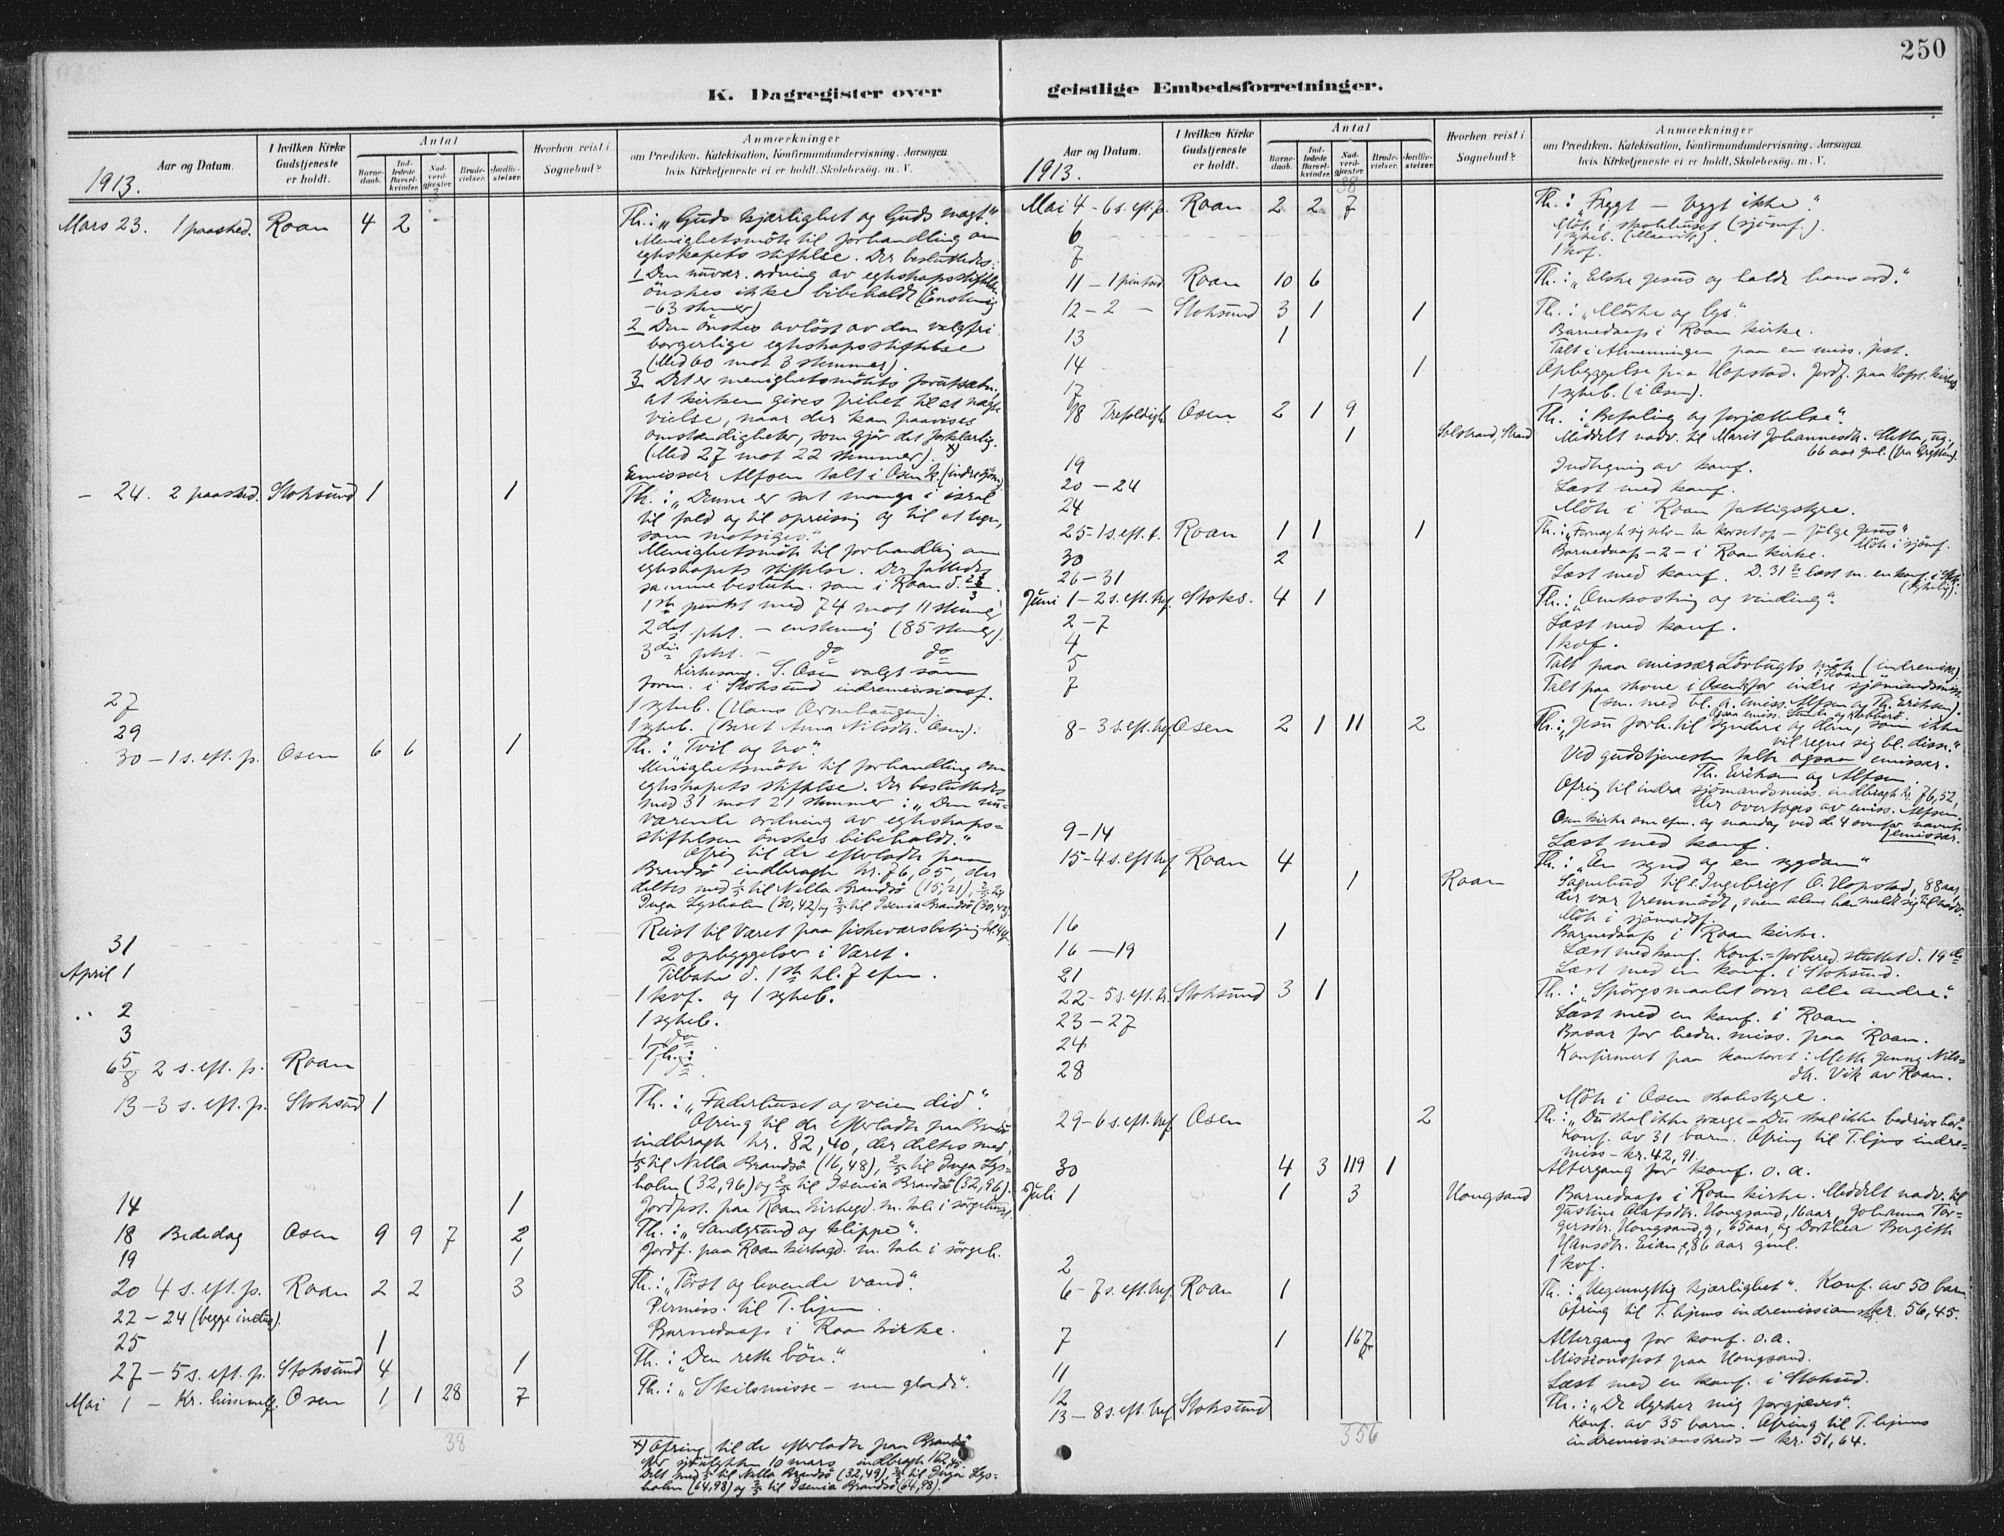 250
K. Dagregister over
geistlige Embedsforretninger.
Aar og Datum.
I hvilken Kirke Gudstjeneste er holdt.
Antal
Barnedaab.
Indledede Barselkvinder.
Nadverdgjæster.
Brudevielser.
Jordfæstelser.
Hvorhen reist i Sognebud?
Anmærkninger
om Prædiken, Katekisation, Konfirmandundervisning, Aarsagen
hvis Kirketjeneste ei er holdt, Skolebesøg, m. V.
1913.
3
Mars 23. 1 paasked. Roan 4 2 - Th.: „Guds kjærlighet og Guds magt."
Menighetsmöte til forhandling om
egteskapets stiftelse. Der besluttedes:
1 Den nuvær. ordning av egteskapsstiftelse
önskes ikke bibeholdt (Enstemig
- 63 stemer)
2 Den önskes avlöst av den valgfri
borgerlige egteskapsstiftelse
(Med 60 mot 3 stemmer).
3 Det er menighetsmötets forutsætn.,
at kirken gives frihet til at nægte
vielse, naar der kan paavises
omstændigheter, som gjör det forklarlig.
(Med 27 mot 22 stemmer). x)
Emissær Alfsen talt i Osen k. (indre sjöm)
- 24. 2 paasked. Stoksund 1 1 Th.: „Denne er sat mange i israel
til fald og til opreisng og til et tegn,
som motsiges."
Menighetsmöte til forhandlig om
egteskapets stiftelse. Der fattedes
samme beslutn. som i Roan d. 23/3.
1ste punkt med 74 mot 11 stemer
2det pkt. - enstemig (85 stemer).
3die pkt. - do do
Kirkesang. S. Osen valgt som
form. i Stoksund indremissionsf.
27 1 sykeb. (Hans Ormhaugen).
29 1 sykeb. (Beret Anna Nilsdtr. Osen).
30 - 1 s. eft. p. Osen 6 6 1 Th.: „Tvil og tro".
Menighetsmöte til forhandling om
egteskapets stiftelse. Der besluttedes
med 31 mot 21 stemmer: „Den nu-
værende ordning av egteskaps-
stiftelsen önskes bibeholdt."
Ofrig til de efterladte paa
Brandsö indbragte kr. 76,05, der
deltes med 1/5 til Nella Brandsö (15,21), 2/5 til
Inga Lysholm (30,42) og 2/5 til Isenia Brandsö (30,42).
31 Reist til Været paa fiskeværsbetjeng kl. 4 ef.
2 opbyggelser i Været.
April 1 Tilbake d. 1ste kl. 7 efm.
1 kof. og 1 sykeb.
2 1 sykeb.
3 1 do
6 5/8 2 s. eft. p. Roan Th.:
13 - 3 s. eft. p. Stoksund 1 Th.: „Faderhuset og veien did".
Ofring til de efterladte paa Brandsö
indbragte kr. 82,40, der deltes med
1/5 til Nella Brandsö (16,48), 2/5 til Inga Lys-
holm (32,96) og 2/5 til Isenia Brandsö (32,96).
14 1 Jordfst. paa Roan kirkegd. m. tale i sörgehuset.
18 Bededag Osen 9 9 7 2 Th.: „Sandgrund og klippe".
19 1 Jordf. paa Roan kirkegd. m. tale i sörgeh.
20 4 s. eft. p. Roan 2 2 3 Th.: „Törst og levende vand".
22 - 24 (begge inclus.) Permiss. til T.hjem.
25 1 Barnedaap i Roan kirke.
27 - 5 s. eft. p. Stoksund 4 1 Th.: „Den rette bön."
Mai 1 - Kr. himmelf. Osen 1 1 28 7 Th.: „Skilsmisse - men glade".
38
x) Ofring til de efterladte paa Brandsö
efter sjöulykken 10 mars indbragte 162,45.
Delt med 1/5 til Nella Brandsö (32,49), 2/5 til Inga Lys-
holm (64,98) og 2/5 til Isenia Brandsö (64,98).
Aar og Datum.
I hvilken Kirke Gudstjeneste er holdt.
Antal
Barnedaab.
Indledede Barselkvinder.
Nadverdgjæster.
Brudevielser.
Jordfæstelser.
Hvorhen reist i Sognebud?
Anmærkninger
om Prædiken, Katekisation, Konfirmandundervisning, Aarsagen
hvis Kirketjeneste ei er holdt, Skolebesøg, m. V.
1913.
38
Mai 4 - 6 s. eft. p. Roan 2 2 7 Th.: „Frygt - frygt ikke."
6 Möte i skolehuset (sjömf.).
1 sykeb. (Maarvik).
7 1 kof.
11 - 1 pintsed. Roan 10 6 Th.: „Elske Jesus og holde hans ord."
12 - 2 - Stoksund 3 1 1 Th.: „Mörke og lys".
13 1 Barnedaap i Roan kirke.
Talt i Almenningen paa en miss. fest.
14 1 Opbyggelse paa Hopstad. Jordf. paa Hofst. kirkeg.
17 1 sykeb. (i Osen).
18 Trefoldigh. Osen 2 1 9 Th.: „Befaling og forjættelse".
1 Solstrand, Strand Meddelt nadv. til Marit Johannesdtr. Sletta, ug.,
66 aar gml.
19 Indtegning av konf.
20 - 24 Læst med konf.
24 Möte i Roan fattigstyre.
25 - 1 s. eft. t. Roan 1 1 1 Th.: „Fornegte sig selv - ta korset op - fölge Jesus"
30 2 Barnedaap - 2 - i Roan kirke. Möte i sjömf.
26 - 31 Læst med konf. D. 31te læst m. en konf. i Stok.
Juni 1 - 2 s. eft. tref. Stoks. 4 1 Th.: „Omkostnig og vinding".
2 - 7 Læst med konf.
4 1 kof.
5 Talt paa emissær Lövbugts möte (indremiss)
i Roan
7 Talt paa stevne i Osen k. for indre sjömandsmiss.
(sm. med bl. a. emiss. Alfsen og Th. Eriksen).
8 - 3 s. eft. tref. Osen 2 1 11 2 Th.: „Jesu forh. til syndere og dem, som ikke
vil regne sig bl. disse."
Ved gudstjenesten talte ogsaa emissær.
Th. Eriksen og Alfsen.
Ofring til indre sjömandsmiss. indbragte kr. 76,52,
der overtoges av emiss. Alfsen.
Osen kirke om efm. og mandag ved de 4 ovenfor nævnte
emissær.
9 - 14 Læst med konf.
15 - 4 s. eft. tref. Roan 4 Th.: „En synd og en sygdom"
1 Roan Sognebud til Ingebrigt O. Hopstad, 88 aar,
der var fremmödt, men alene han meldt sig til nadv.
Möte i sjömandsf.
16 1 Barnedaap i Roan kirke.
16 - 19 Læst med konf. Konf.-forbered. sluttet d. 19de
21 Læst med en konf. i Stoksund.
22 - 5 s. eft. tr. Stoksund 3 1 Th.: „Spörgsmaalet over alle andre".
23 - 27 Læst med en konf. i Roan.
24 Basar for hedn. miss. paa Roan.
28 Konfirmert paa kontoret: Mette Jenny Nils-
dtr. Vik av Roan.
Möte i Osen skolestyre.
29 - 6 s. eft. tref. Osen 2 Th.: „Du skal ikke sværge - Du skal ikke bedrive hor"
Konf. av 31 barn. Ofring til T.hjems indre-
miss - kr. 42,91.
30 4 3 119 1 Altergang for konf. o. a.
Juli 1 1 3 Hongsand Barnedaap i Roan kirke. Meddelt nadv. til
Justine Olafsdtr. Hongsand, 16 aar, Johanna Tor-
gersdtr. Hongsand, g., 65 aar, og Dorthea Bergitte
Hansdtr. Eian, e, 86 aar gml.
2 1 kof.
6 - 7 s. eft. tref. Roan 1 Th.: „Uegennyttig kjærlighet". Konf. av 50 barn.
Ofring til T.hjems indremissionskr. kr. 56,45.
7 1 167 Altergang for konf. o.a.
Missionsfest paa Hongsand.
11 Læst med en konf. i Stoksund.
12
13 - 8 s. eft. tref. Stoksund Th.: „De dyrker mig forgjæves".
Konf. av 35 barn. Ofring til T.hjems
indremissionskreds - kr. 51,64.
356